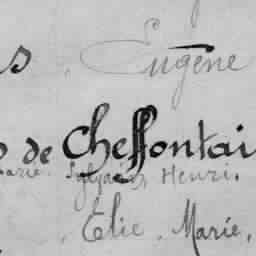 s Eugène
de Cheffontai
Marie Sylvain Henri.
Elie. Marie.